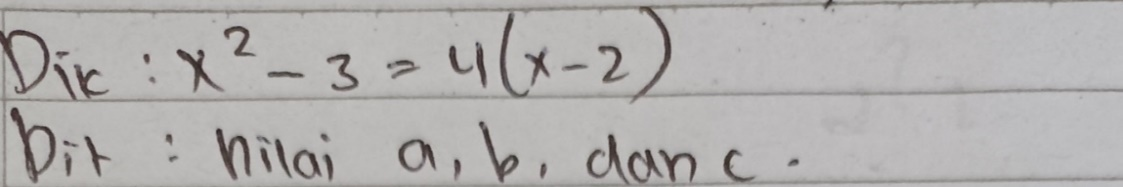 Dik : x² - 3 = 4(x-2)
Dit : nilai a, b, dan c.